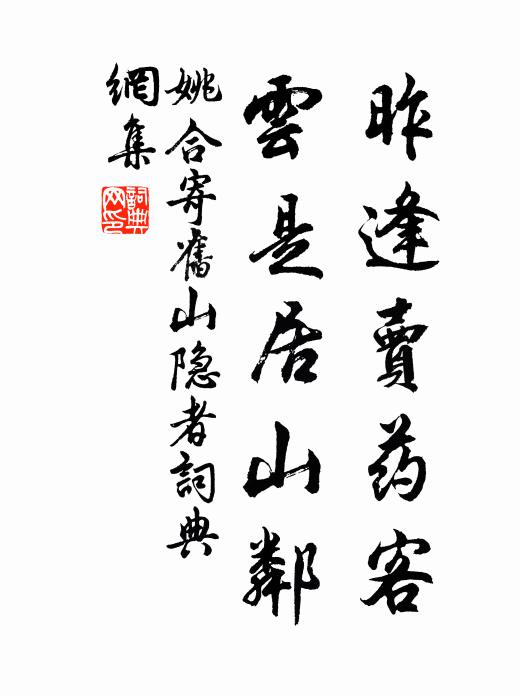 昨逢賣药客
雲是居山鄰
姚合寄舊山隐者詞典
網集
詞典
网印